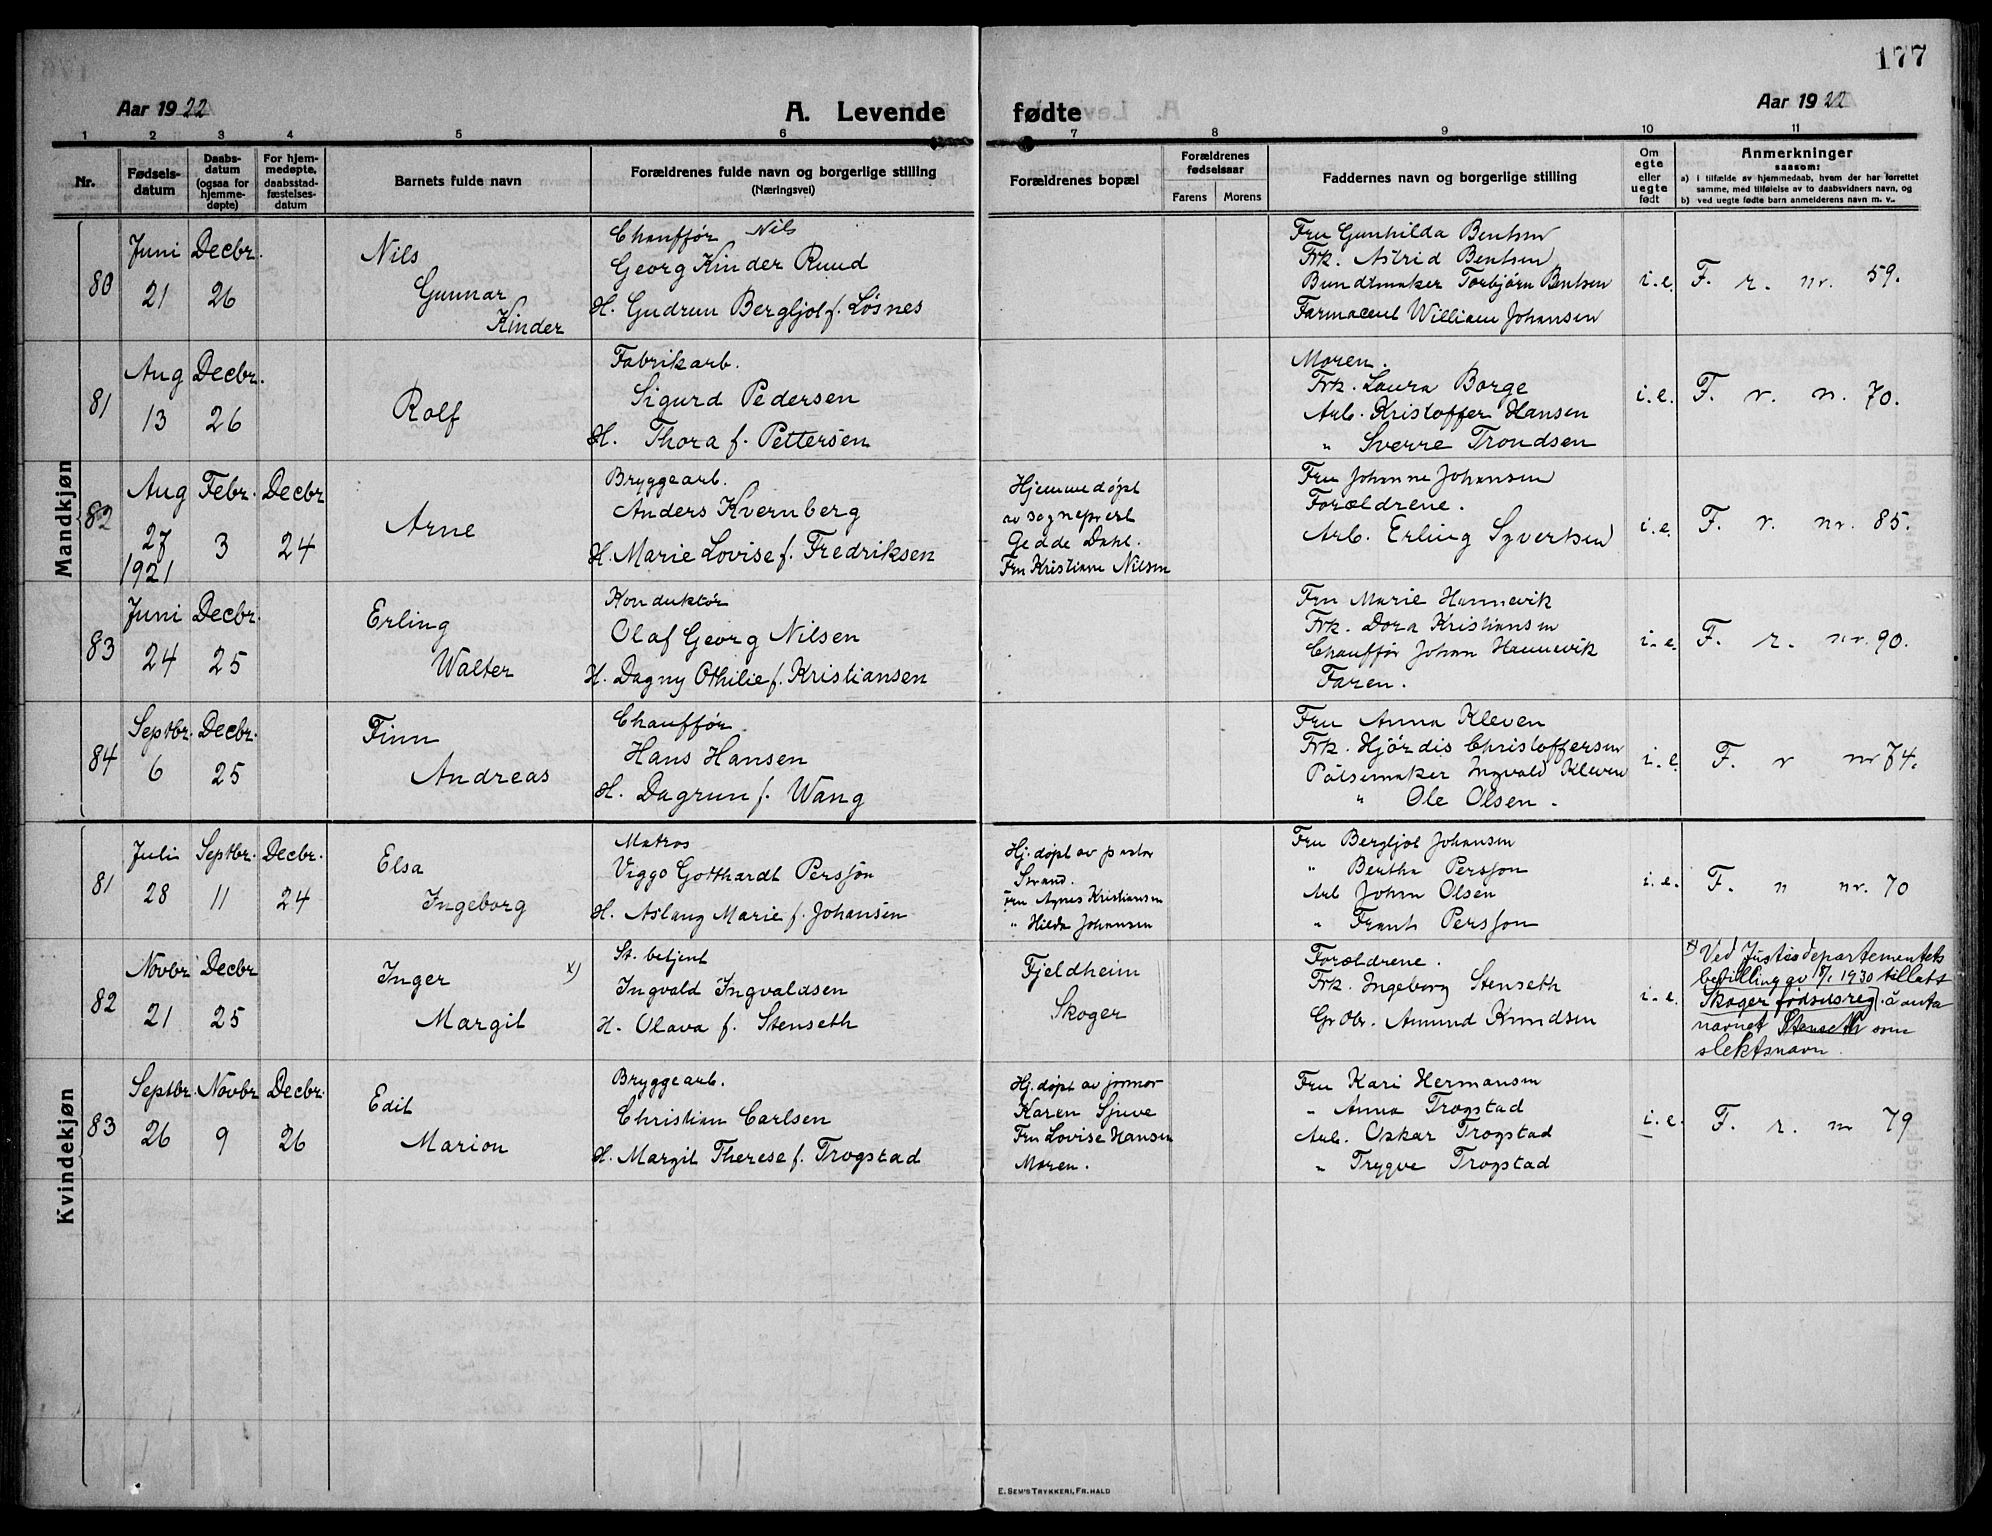 177
Aar 1922
A. Levende fødte
Aar 1922
1 2 3 4 5 6 7 8 9 10 11
Nr.
Fødselsdatum
Daabsdatum (ogsaa for hjemmedøpte)
For hjemmedøpte, daabsstadfæstelsesdatum
Barnets fulde navn
Forældrenes fulde navn og borgerlige stilling
(Næringsvei)
Forældrenes bopæl
Forældrenes fødselsaar
Farens
Morens
Faddernes navn og borgerlige stilling
Om egte eller uegte født
Anmerkninger
saasom:
a) i tilfælde av hjemmedaab, hvem der har forrettet samme, med tilføielse av to daabsvidners navn, og
b) ved uegte fødte barn anmelderens navn m. v..
Mandkjøn
80
Juni 21
Decbr. 26
Nils
Gunnar
Kinder
Chauffør Nils
Georg Kinder Ruud
H. Gudrun Bergljot f. Løsnes
Fru Gunhilda Bentsen
Frk. Astrid Bentsen
Bundtmaker Torbjørn Bentsen
Farmaceut William Johansen
i.e.
F. r. nr. 59.
81
Aug 13
Decbr. 26
Rolf
Fabrikarb.
Sigurd Pedersen
H. Thora f. Pettersen
Moren.
Frk. Laura Borge
Arb. Kristoffer Hansen
" Sverre Trondsen
i.e.
F. r. n. 70.
82
Aug 27 1921
Febr. 3
Decbr 24
Arne
Bryggearb.
Anders Kvernberg
H. Marie Lovise f. Fredriksen
Hjemmedøpt
av sogneprest
Gedde Dahl.
Fru Kristiane Nilsen
Fru Johanne Johansen
Forældrene.
Arb. Erling Syvertsen
i.e.
F. r. nr. 85.
83
Juni 24
Decbr. 25
Erling
Walter
Konduktør
Olaf Georg Nilsen
H. Dagny Othilie f. Kristiansen
Fru Marie Hannevik
Frk. Dora Kristiansen
Chauffør Johan Hannevik
Faren.
i.e.
F. r. nr. 90.
84
Septbr. 6
Decbr. 25
Finn
Andreas
Chauffør
Hans Hansen
H. Dagrun f. Wang
Fru Anna Kleven
Frk. Hjørdis Christoffersen
Pølsemaker Ingvald Kleven
" Ole Olsen.
i.e.
F. r nr 74.
Kvindekjøn
81
Juli 28
Septbr. 11
Decbr. 24
Elsa
Ingeborg
Matros
Viggo Gotthardt Persson
H. Aslaug Marie f. Johansen
Hj. døpt av pastor
Strand.
Fru Agnes Kristiansen
" Hilda Johansen
Fru Bergljot Johansen
" Bertha Persson
Arb Johan Olsen
" Frants Persson
i.e.
F. n nr. 70
82
Novbr 21
Decbr 25
Inger x)
Margit
St. betjent
Ingvald Ingvaldsen
H. Olava f. Stenseth
Fjeldheim
Skoger
Forældrene.
Frk. Ingeborg Stenseth
Grdbr. Amund Knudsen
i.e.
x) Ved Justisdepartementets
bevilling av 8/1 1930 tillats
[Skoger fødselsreg]. å anta
navnet Stenseth som
slektsnavn.
83
Septbr. 26
Novbr 9
Decbr. 26
Edit
Marion
Bryggearb.
Christian Carlsen
H. Margit Therese f. Trogstad
Hj. døpt av jormor
Karen Sjuve
Fru Lovise Hansen
Moren.
Fru Kari Hermansen
" Anna Trogstad
Arb. Oskar Trogstad
" Trygve Trogstad
i.e.
F. r. nr 79
E. SEM'S TRYKKERI, FR.HALD